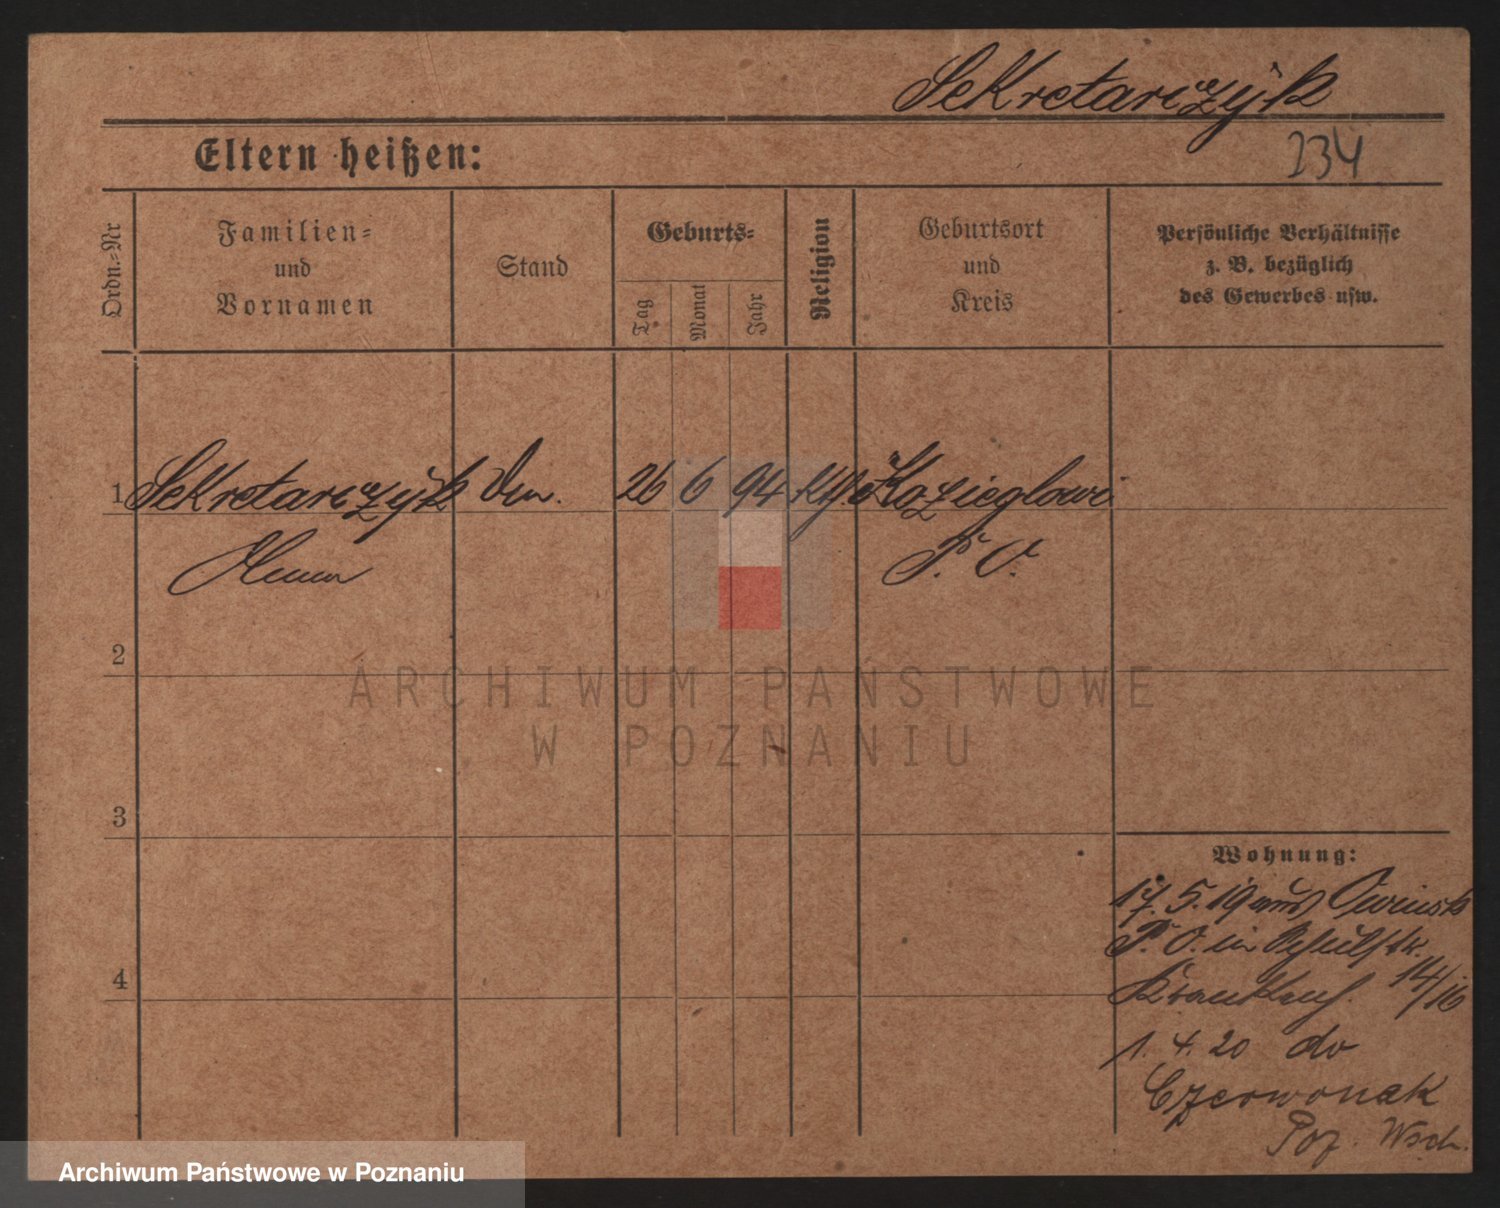 Sekretarczyk
234
Eltern heißen:
Ordn.-Nr
Familien-
und
Vornamen
Stand
Geburts-
Tag
Monat
Jahr
Religion
Geburtsort
und
Kreis
Persönliche Verhältnisse
z. B. bezüglich
des Gewerbes usw.
1 Sekretarczyk 26 6 94 Kth. Koziegłowi
P. O.
2
ARCHIWUM PAŃSTWOWE
W POZNANIU
3
Wohnung:
17. 5. 19 aus Owinsk
P. O. in
Krankenh. 14/16
4
1. 4. 20 do
Czerwonak
Poz. Wsch.
Archiwum Państwowe w Poznaniu